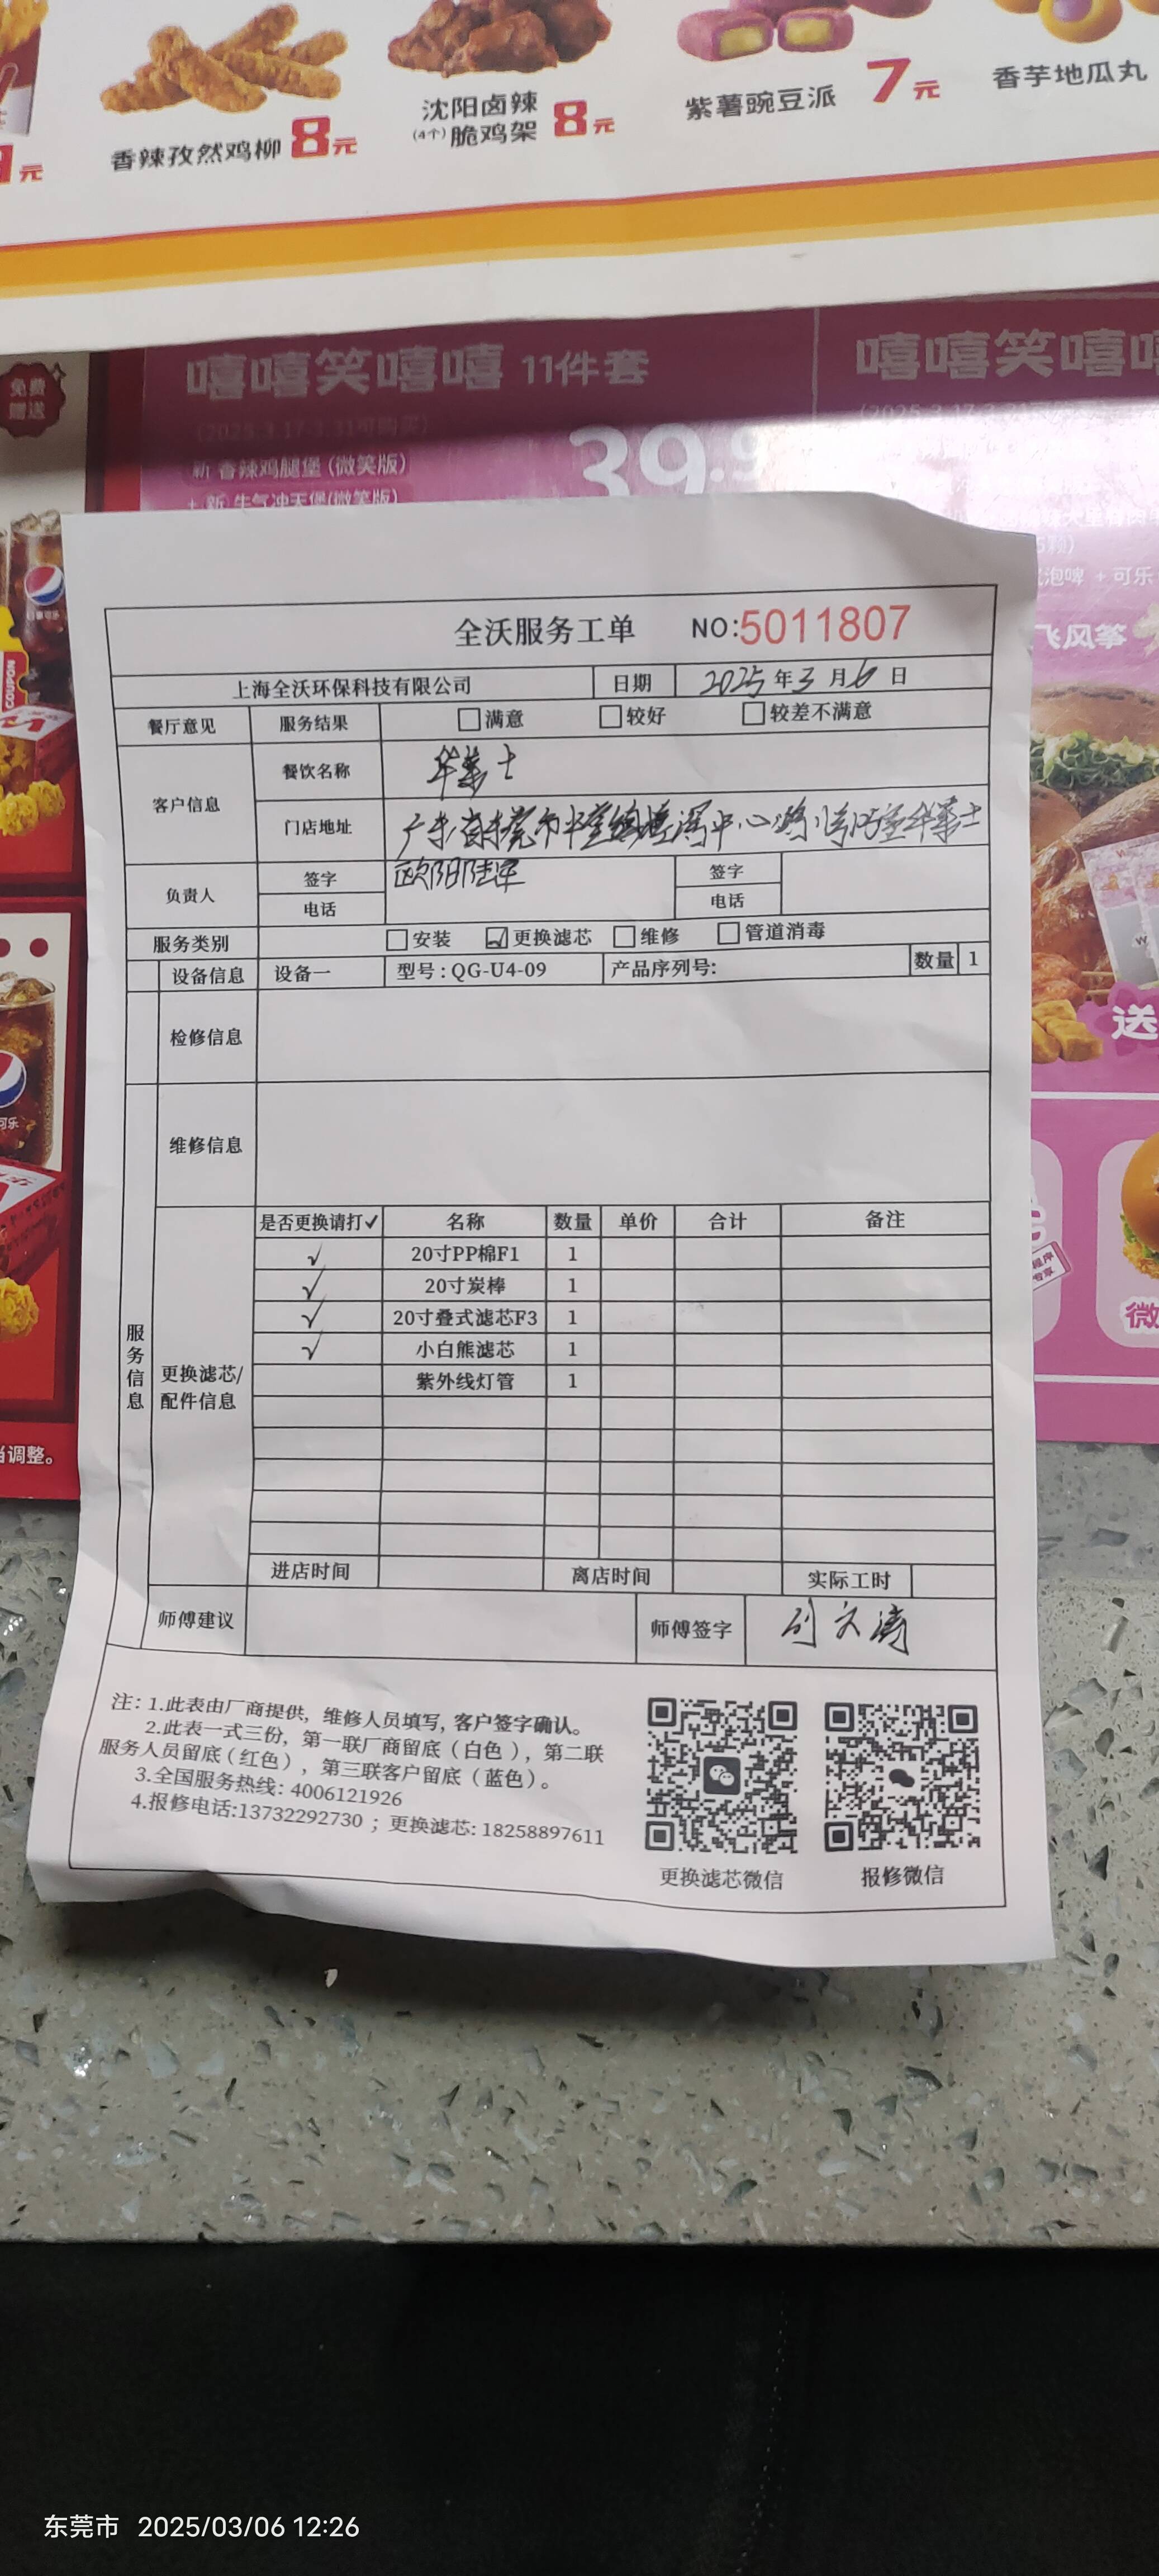 元
香辣孜然鸡柳 8元
沈阳卤辣
(4个) 脆鸡架 8元
紫薯豌豆派 7元
香芋地瓜丸
免费
赠送
嘻嘻笑嘻嘻 11件套
嘻嘻笑嘻
(2025.3.17-3.31可购买)
39.9
新 香辣鸡腿堡 (微笑版)
+ 新 牛气冲天堡(微笑版)
泡啤 + 可乐
飞风筝
COUPON
全沃服务工单 NO:5011807
上海全沃环保科技有限公司 日期 2025年3月6日
餐厅意见 服务结果 满意 较好 较差不满意
客户信息 餐饮名称 华莱士
门店地址 广东省东莞市中堂镇 中心路 华莱士
负责人 签字 欧阳陆军 签字
电话 电话
服务类别 安装 更换滤芯 维修 管道消毒
设备信息 设备一 型号：QG-U4-09 产品序列号: 数量 1
检修信息
维修信息
服务信息
更换滤芯/
配件信息
是否更换请打✓ 名称 数量 单价 合计 备注
✓ 20寸PP棉F1 1
✓ 20寸炭棒 1
✓ 20寸叠式滤芯F3 1
✓ 小白熊滤芯 1
紫外线灯管 1
进店时间 离店时间 实际工时
师傅建议 师傅签字 刘文涛
注：1.此表由厂商提供，维修人员填写, 客户签字确认。
2.此表一式三份，第一联厂商留底（白色），第二联
服务人员留底（红色），第三联客户留底（蓝色）。
3.全国服务热线: 4006121926
4.报修电话:13732292730 ；更换滤芯: 18258897611
更换滤芯微信
报修微信
送
微
当调整。
东莞市 2025/03/06 12:26